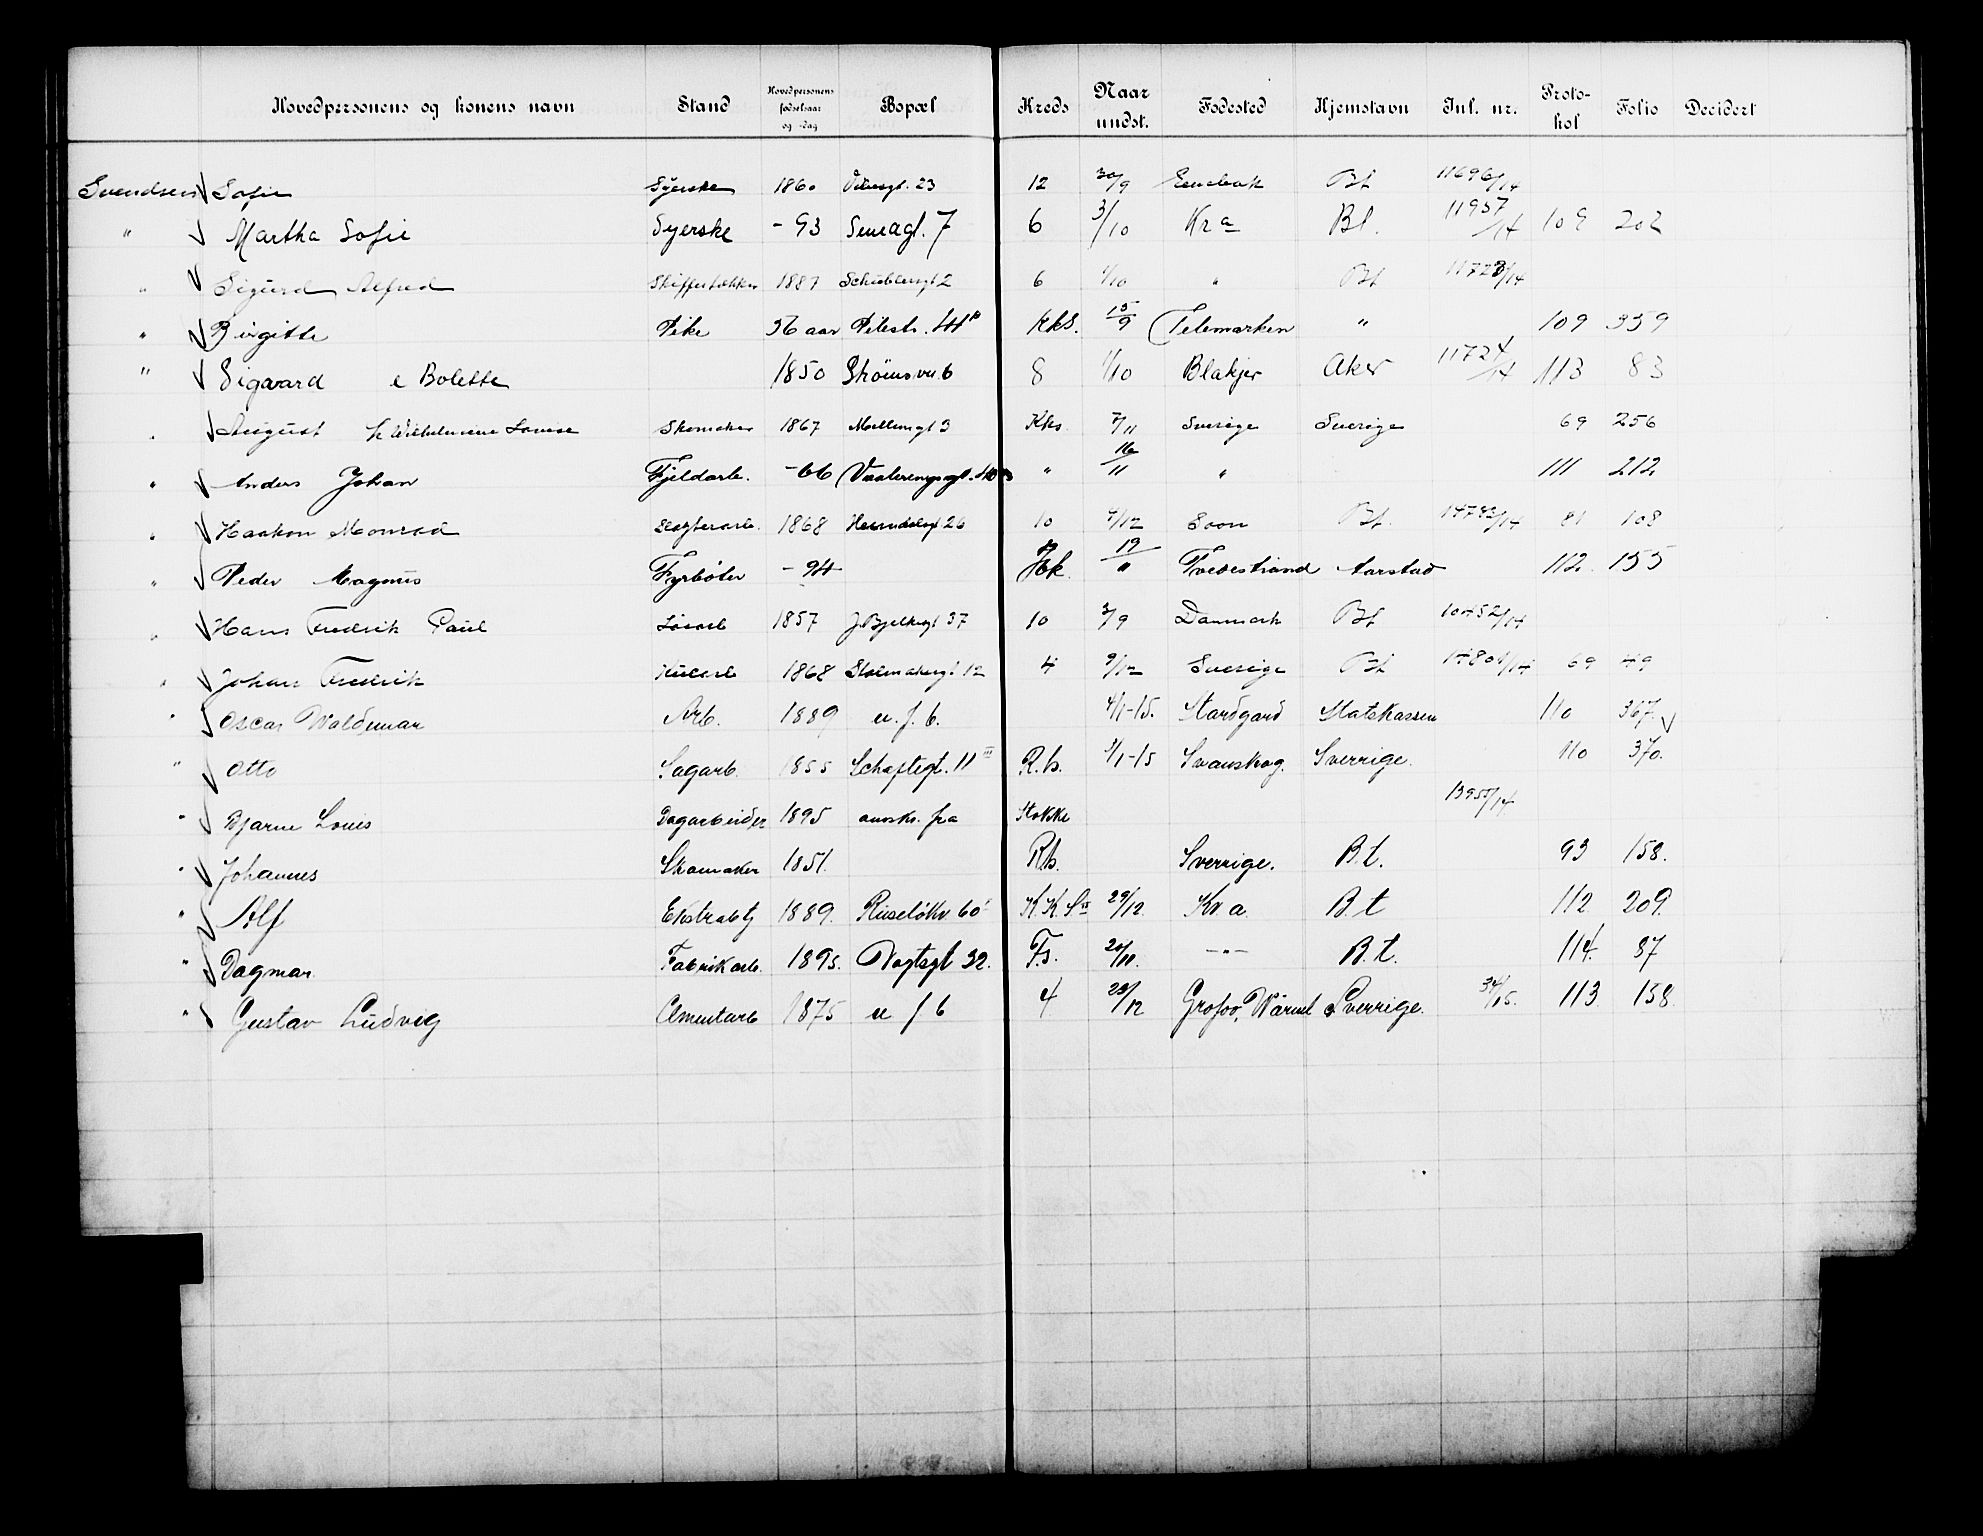 Hovedpersonens og konens navn Stand Hovedpersonens fødselsaar og -dag Bopæl Kreds Naar undst. Fødested Hjemstavn Jnl. nr. Protokol Folio Decidert
Svendsen Sofie Syerske 1860 Vibesgt. 23 12 30/9 Enebak Bt 11696/14
" Martha Sofie Syerske - 93 7 6 3/10 Kra Bt. 11957/14 109 202
" Sigurd Alfred Skiffertækker 1887 Schüblersgt 2 6 1/10 " Bt 11723/14
" Birgitte Pike 56 aar Pilestr. KkS. 15/9 Telemarken " 109 359
" Sigvard e Bolette 1850 6 8 1/10 Blakjer Aker 11724/14 113 83
" August h Wilhelmine Lovise Skomaker 1867 Møllergt 3 Kks. 7/11 Sverige Sverige 69 256
" Anders Johan Fjeldarb. - 66 " 16/11 " 111 212
" Haakon Monrad Slagterarb. 1868 26 10 4/12 Soon Bt. 14782/14 81 108
" Peder Magnus Fyrbøter - 94 19/" Tvedestrand Aarstad 112 155
" Hans Fredrik Paul Løsarb 1857 J. Bjelkesgt 37 10 3/9 Danmark Bt 10452/14
" Johan Fredrik 1868 Stolmakergt 12 4 9/12 Sverige Bt 14801/14 69 49
" Oscar Waldemar Arb. 1889 u. f. b. 4/1-15. Stardgard Statskassen 110 367.
" Otto Sagarb. 1855 Schaftegt. 11 III R.h. 5/1-15 Svanskog. Sverrige. 110 370.
" Bjarne Louis Dagarbeider 1895 ansks. fra Stokke 13955/14
" Johannes Skomaker 1851. R.h. Sverrige. B.t. 93 158.
" Alf Ekstrabtj 1889. Ruseløkv 60 K.K.S. 29/12. Kr.a. B.t 112 209.
" Dagmar. Fabrikarb. 1895. Vogtsgt 32. F.s. 20/11. -"- B.t. 114. 87
" Gustav Ludvig Cementarb 1875 u f b 4 23/12 Värml Sverrige. 34/15. 113. 158.